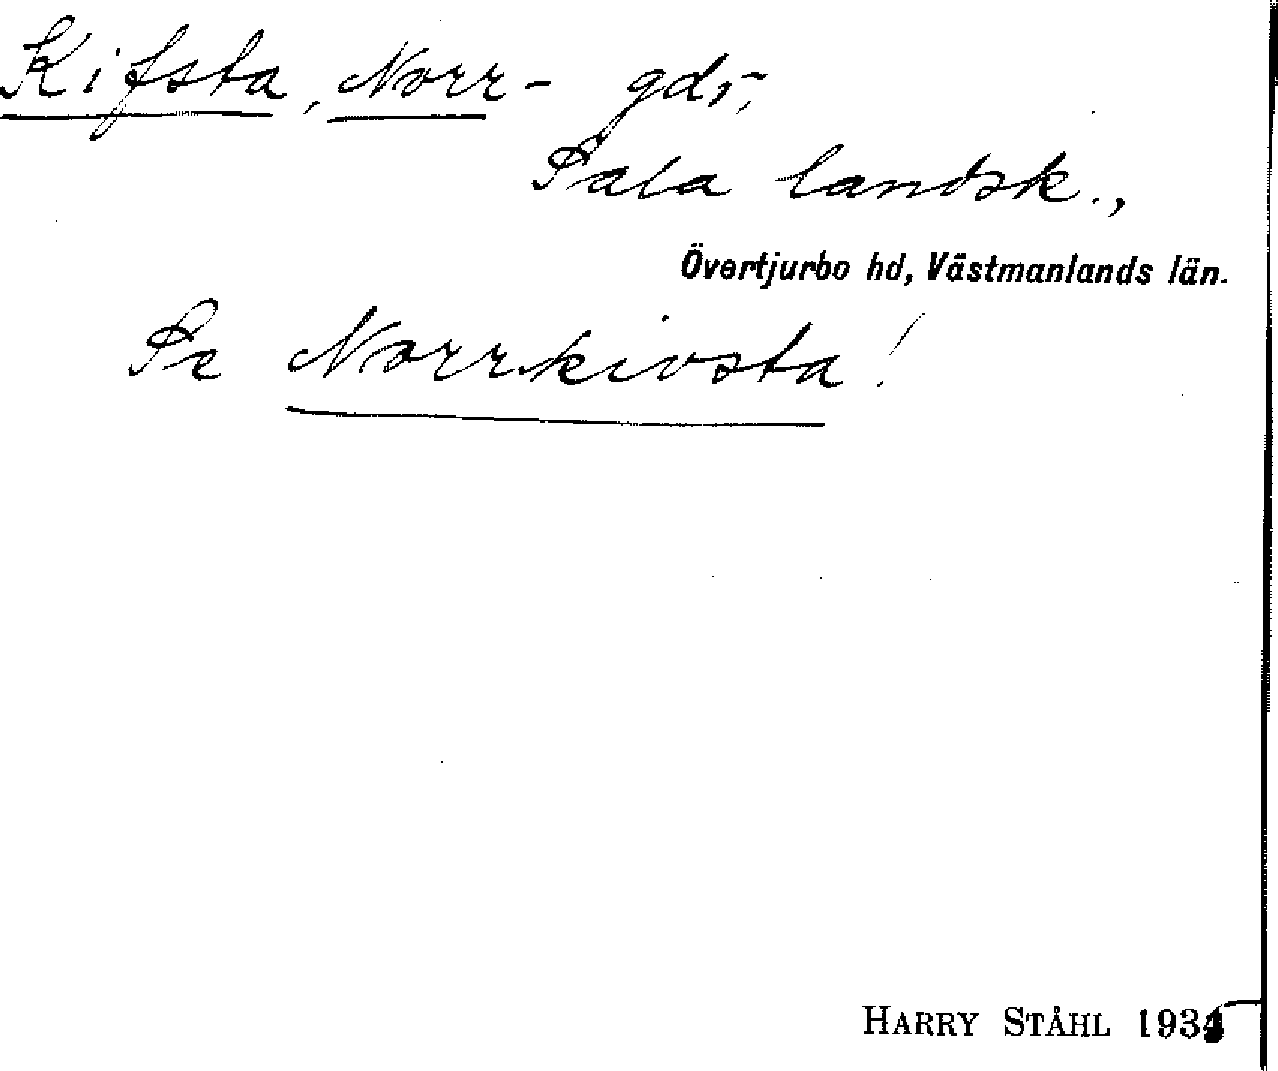 Kifsta, Norr- gdr,
Sala landsk.,
Övertjurbo hd, Västmanlands län.
Se Norrkivsta!
HARRY STÅHL 193